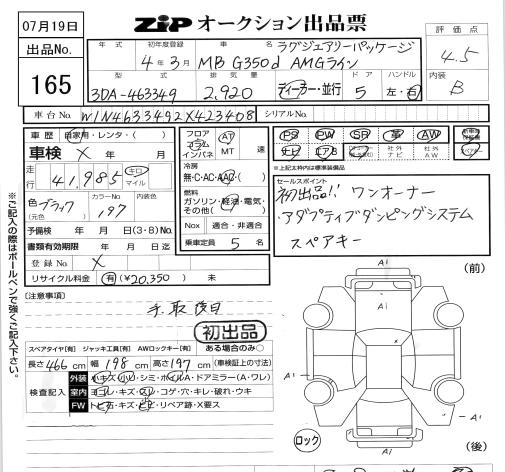 07月19日
ZiP オークション出品票
出品No.
165
年式 初年度登録 車名 評価点
4年3月 MB G350d AMGライン ラグジュアリーパッケージ 4.5
型式 排気量 ドア ハンドル 内装
3DA-463349 2,920 ディーラー・並行 5 左・右 B
車台No. W1N4633492X423408 シリアルNo.
車歴 自家用・レンタ・( )
車検 X 年 月
走行 41,985 キロ マイル
色 ブラック (元色) カラーNo. 197
予備検 年 月 日(3・8)No.
書類有効期限 年 月 日迄
登録No. X
リサイクル料金 有(¥20,350) 未
フロア コラム インパネ AT MT 速
冷房
無・C・AC・AAC・( )
燃料
ガソリン・軽油・電気・その他( )
Nox 適合・非適合
乗車定員 5 名
PS PW SR 革 AW
ナビ エアB 社外ナビ 社外AW
*上記太枠内は標準装備品
セールスポイント
初出品!! ワンオーナー
・アダプティブダンピングシステム
スペアキー
※ご記入の際はボールペンで強くご記入下さい。
[注意事項]
書取後日
初出品
スペアタイヤ[有] ジャッキ工具[有] AWロックキー[有] ある場合のみ○
長さ466cm 幅198cm 高さ197cm (車検証上の寸法)
検査記入
外装 小キズ・小凹・シミ・ホイルA・ドアミラー(A・ワレ)
室内 ヨゴレ・キズ・スレ・コゲ・穴・キレ・破れ・ウキ
FW トビ石・キズ・ヒビ・リペア跡・X要ス
(前)
A1
A1
A1
A1
A1
A1
ロック
(後)